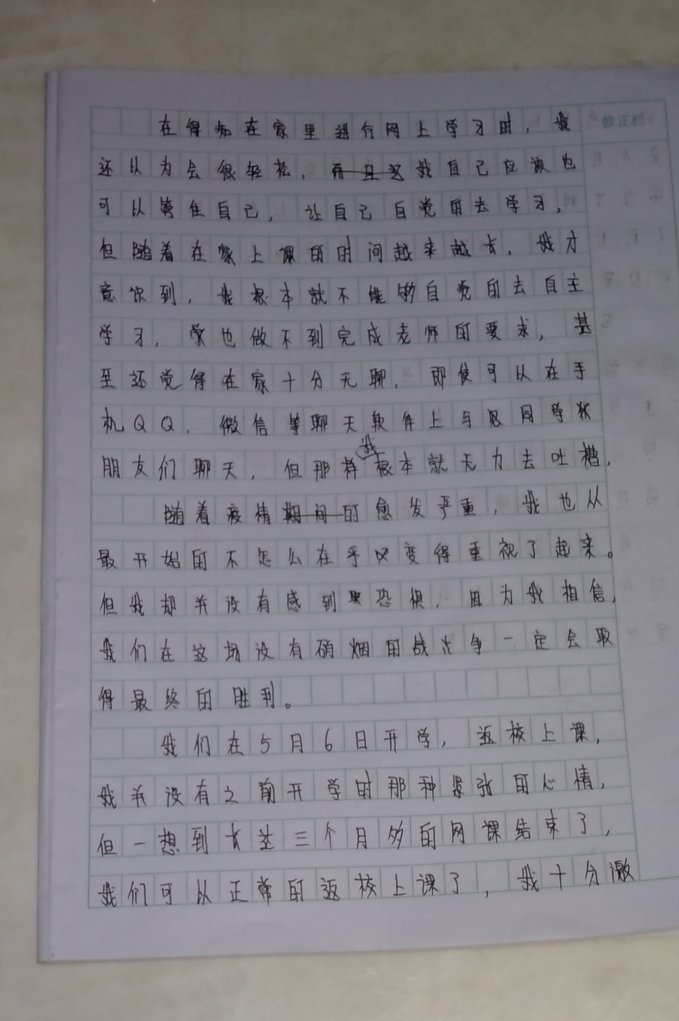 在得知在家里进行网上学习时，我
修正栏
还以为会很轻松，而且这我自己应该也
可以管住自己，让自己自觉的去学习，
但随着在家上课的时间越来越长，我才
意识到，我根本就不能够自觉的去自主
学习，常也做不到完成老师的要求，甚
至还觉得在家十分无聊，即使可以在手
机QQ，微信等聊天软件上与同学
朋友们聊天，但那样我根本就无力去吐槽，
随着疫情期间的愈发严重，我也从
最开始的不怎么在乎变得重视了起来。
但我却并没有感到恐惧，因为我相信，
我们在这场没有硝烟的战争一定会取
得最终的胜利。
我们在5月6日开学，返校上课，
我并没有之前开学时那种紧张的心情，
但一想到长达三个月多的网课结束了，
我们可以正常的返校上课了，我十分激